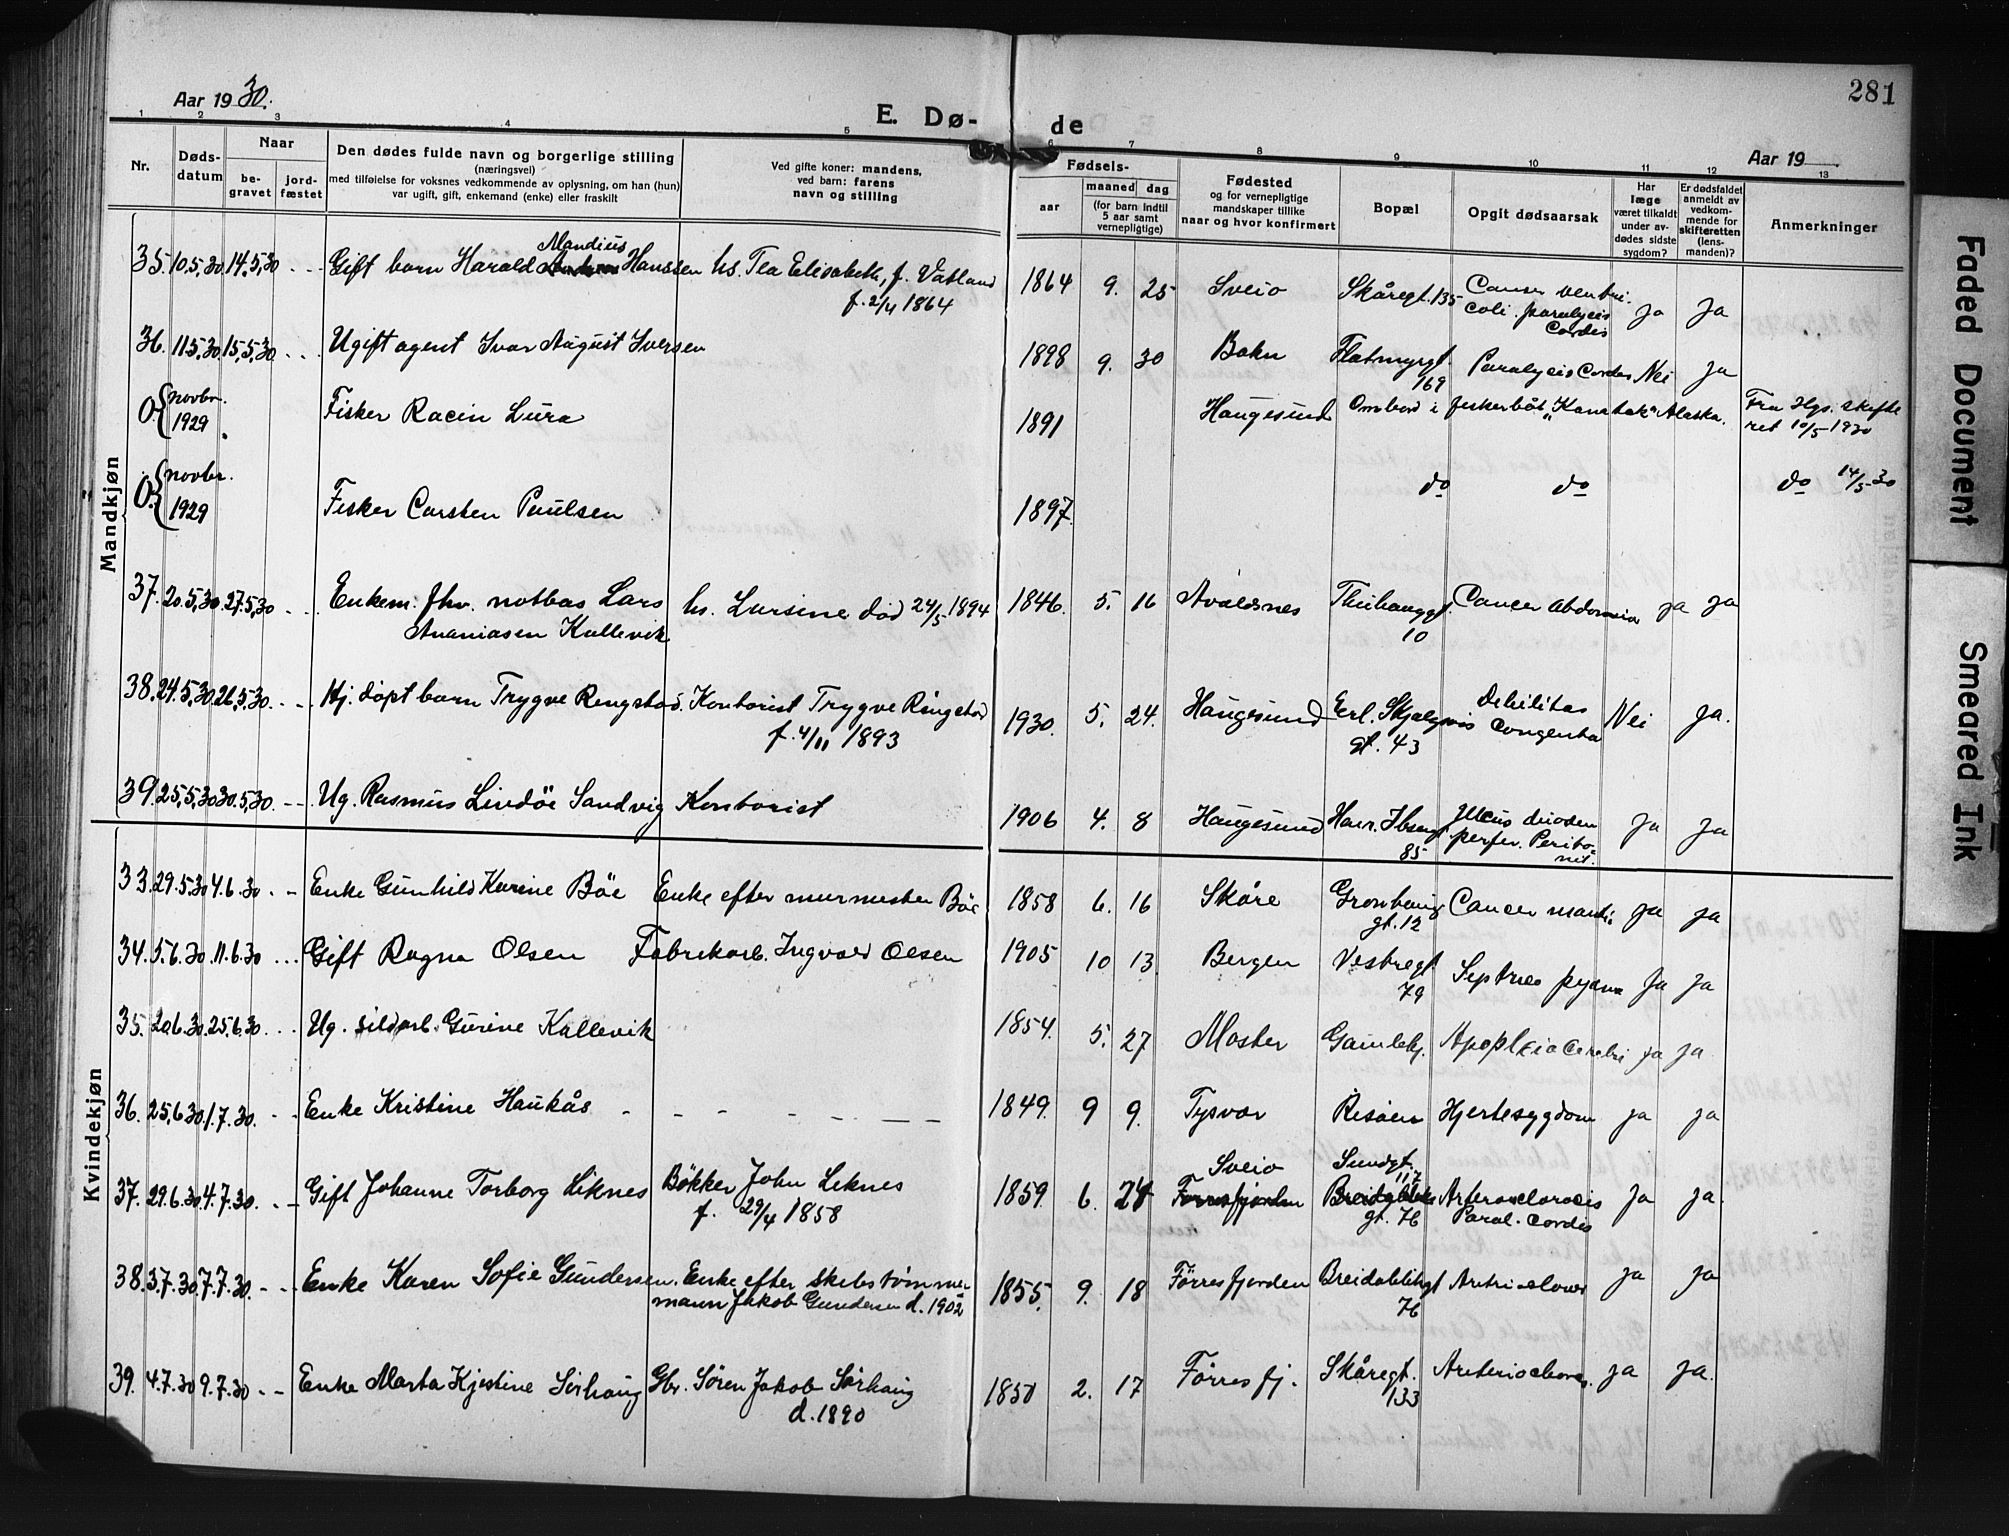 281
Aar 19 30.
E. Dø-
de
Aar 19
1 2 3 4 5 6 7 8 9 10 11 12 13
Nr.
Døds-
datum
Naar
be-
gravet
jord-
fæstet
Den dødes fulde navn og borgerlige stilling
(næringsvei)
med tilføielse for voksnes vedkommende av oplysning, om han (hun)
var ugift, gift, enkemand (enke) eller fraskilt
Ved gifte koner: mandens,
ved barn: farens
navn og stilling
Fødsels-
aar
maaned
dag
(for barn indtil
5 aar samt
vernepligtige)
Fødested
og for vernepligtige
mandskaper tillike
naar og hvor konfirmert
Bopæl
Opgit dødsaarsak
Har
læge
været tilkaldt
under av-
dødes sidste
sygdom?
Er dødsfaldet
anmeldt av
vedkom-
mende for
skifteretten
(lens-
manden)?
Anmerkninger
Mandkjøn
Mandius
35. 10.5.30 14.5.30 - - Gift Harald Hanssen hs. Tea Elisabeth, f. Vatland 1864 9. 25 Sveio Skåregt. 135 Cancer ventri-
f. 2/4 1864 coli. paralysis ja ja
Cordis
36. 11.5.30 15.5.30 - - Ugift agent Ivar August Iversen 1898 9. 30 Bokn Flotmyrgt. Paralysis Cordis Nei ja
169
0. { novbr. 1929 Fisker Racin Lura 1891 Haugesund Ombord i fiskerbåt "Kanatak" Alaska. Fra Hgs. skifte
ret 10/5 1930
0. { novbr. 1929 Fisker Carsten Paulsen 1897. do do do 14/5 30
37. 20.5.30 27.5.30 - - Enkem. fhv. notbas Lars hs. Lursine død 24/5 1894 1846. 5. 16 Avaldsnes 10 Cancer abdominis ja ja
Ananiasen Kallevik
38. 24.5.30 26.5.30 - - Hj. døpt barn Trygve Ringstad. Kontorist Trygve Ringstad 1930. 5. 24. Haugesund Erl. Skjalgsøns Debilitas Nei ja.
f. 4/11 1893 gt. 43 Congenita
39. 25.5.30 30.5.30 - - Ug. Rasmus Lindöe Sandvig Kontorist 1906 4. 8 Haugesund Henr. Ibsengt. Ulcus duoden ja ja
85 perfor. Perito-
nit.
Kvindekjøn
33. 29.5.30 4.6.30 - - Enke Gunhild Karine Böe Enke efter murmester Böe 1858 6. 16 Skåre Gronhaug Cancer ja ja
gt. 12
34. 5.6.30 11.6.30 - - - Gift Ragna Olsen Fabrikarb. Ingvald Olsen 1905 10 13. Bergen Vestregt. ja ja
79
35. 20.6.30 25.6.30 - - - Ug. sildarb. Gurine Kallevik 1854. 5. 27 Moster Gamlehj. Apoplexia Cerebri ja ja
36. 25.6.30 1.7.30. - - Enke Kristine Haukås - - - - - - - 1849. 9 9. Tysvær Risöen Hjertesygdom ja ja
Sveio Sundgt.
117
37. 29.6.30 4.7.30. - - Gift Johanne Torborg Liknes Bökker John Liknes 1859. 6. 24 Førresfjorden Breidabliks Arteriosclerosis ja ja.
f. 29/4 1858 gt. 76 Paral. cordis
38. 3.7.30 7.7.30. - - - Enke Karen Sofie Gundersen. Enke efter skibstømmer 1855. 9. 18 Førresfjorden Breidablikgt ja ja
mann Jakob Gundersen d. 1902 76
39. 4.7.30 9.7.30 - - Enke Marta Kjestine Sörhaug Gbr. Søren Jakob Sörhaug 1851 2. 17 Førresfj. Skåregt. ja ja.
d. 1890 133
Faded Document
Smeared Ink